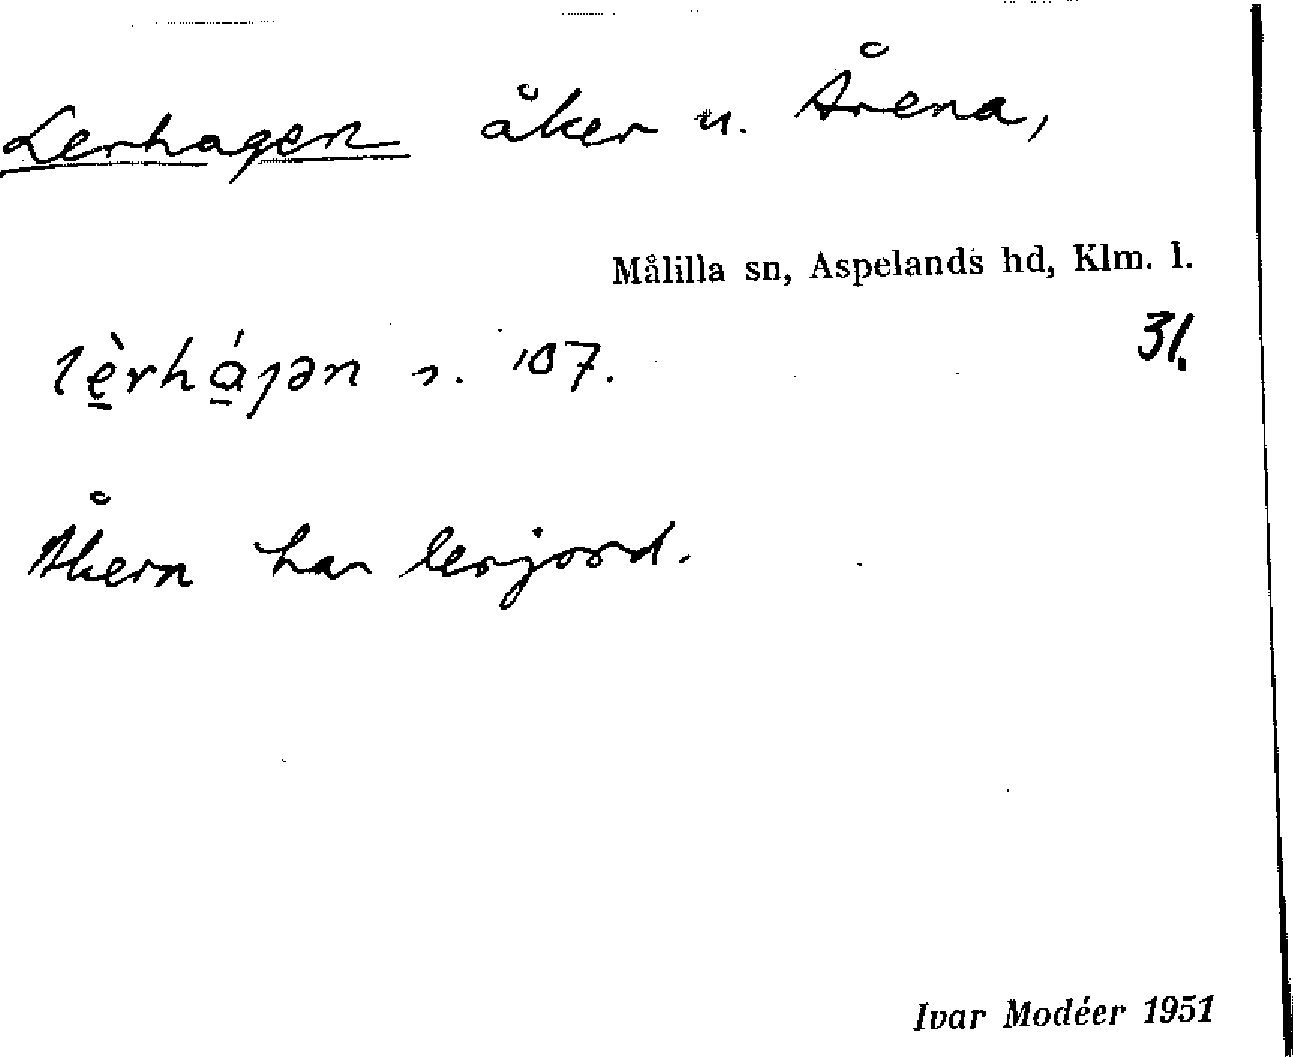 Lerhagen åker u. Årena,
Målilla sn, Aspelands hd, Klm. l.
31.
lè̱rhá̱ȷən s. 107.
Åkern har lerjord.
Ivar Modéer 1951